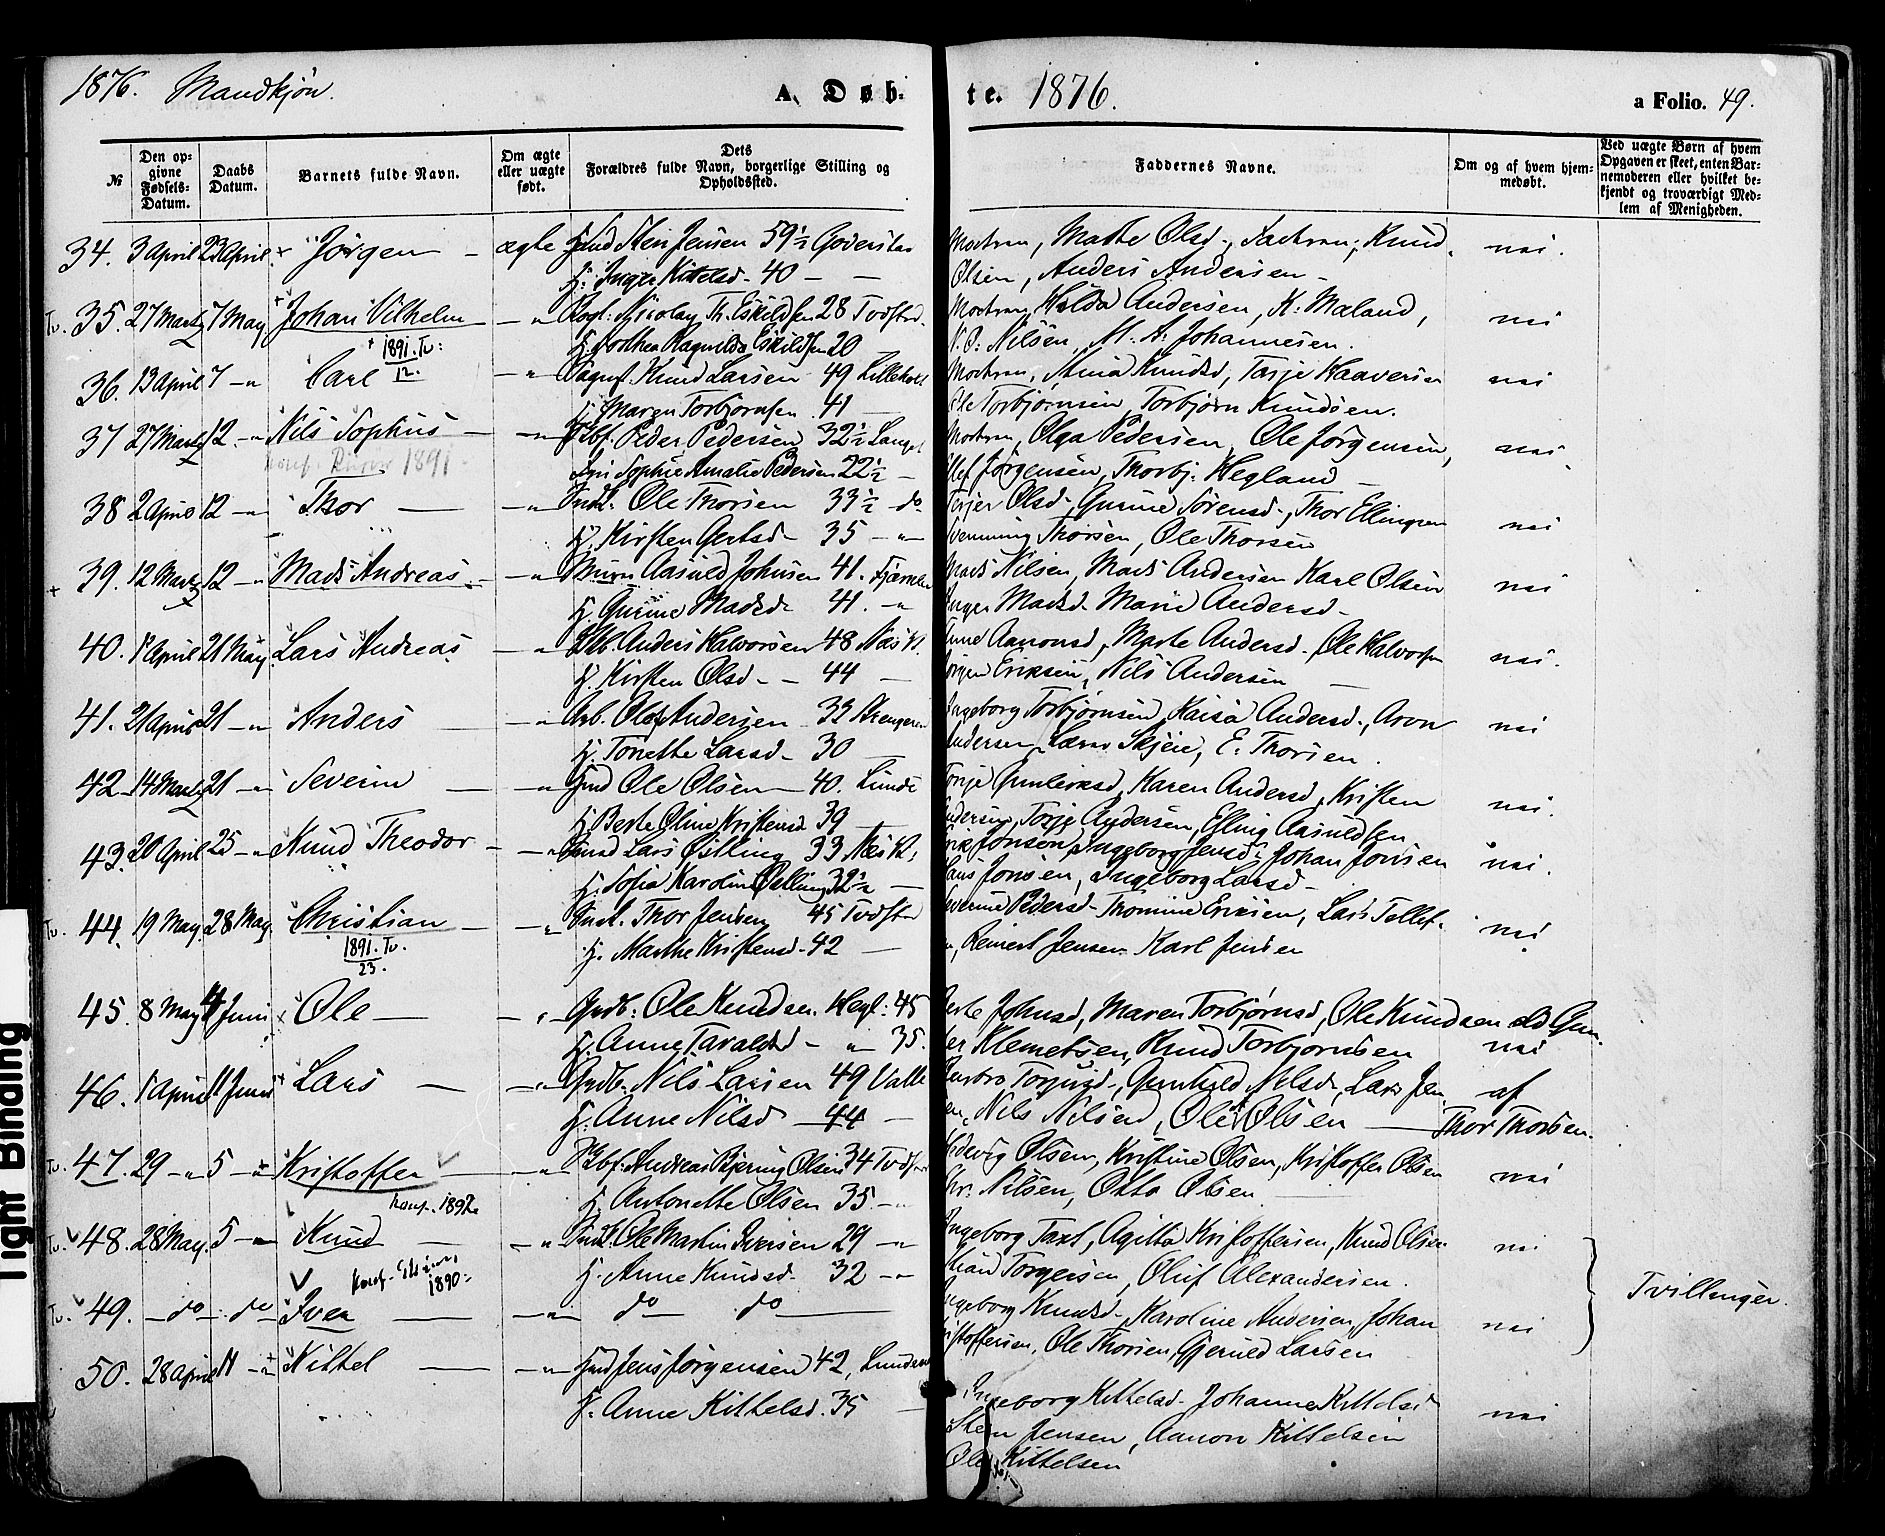 1876. Mandkjön. A. Døb-
te. 1876. a Folio. 49.
№ Den op-givne Fødsels-Datum. Daabs Datum. Barnets fulde Navn. Om ægte eller uægte født. Dets Forældres fulde Navn, borgerlige Stilling og Opholdssted. Faddernes Navne. Om og af hvem hjem-medøbt. Ved uægte Børn af hvem Opgaven er skeet, enten Bar-nemoderen eller hvilket be-kjendt og troværdigt Med-lem af Menigheden.
34. 3 April 23 April Jørgen - ægte Gmd Sten Jensen 59½ Moeren, Marthe Olsd., Knud nei.
H: Inger Kittelsd - 40 - - Olsen, Anders Andersen -
Tv. 35. 27 Marts 7 May Johan Vilhelm - " Nicolay Th. Eskildsen 28 Tvedstrd. Hilda Andersen, K. Maland, nei
1891. Tv: 12. H Dorthea Ragnilda Eskildsen 20 Nilsen, M. A. Johannesen.
36. 13 April 7 - " Carl - " Knud Larsen 49 Lilleholt Anna Knudsd, Tarje Haaversen nei
H Maren Torbjørnsen 41 Ole Torbjørnsen, Torbjørn Knudsen.
37 27 Marts 12 - " Nils Sophus - - " Peder Pedersen 32½ Olga Pedersen, Ole Jørgensen, nei
1891 - Sophie Amalie Pedersen 22½ - Jørgensen, Thorbj. Hegland -
38 2 April 12 - " Thor - - " Ole Thorsen 33½ do Olsd., Gurine Sørensd., Thor Ellingsen nei
H. Kirsten Gertsd - 35 - " - Thorsen, Ole Thorsen
+ 39. 12 Marts 12 - " Mads Andreas - - " Aasuld Johnsen 41. Mads Nilsen, Mads Andersen Karl Olsen nei
H. Gurine Madsd. 41. - " Inger Madsd. Marie Andersd -
40. 1 April 21 May. Lars Andreas. - " Anders Halvorsen 48 Næs V. Anne Aanonsd, Marte Andersd - Ole Halvorsen nei.
H. Kirsten Olsd - - 44 - Jørgen Eriksen, Nils Andersen -
41. 21 April 21 - " Anders - - " Arb. Oluf Andersen 32 Strengeren Ingeborg Torbjørnsen, Kaisa Andersd., Aron nei
H. Tonette Larsd - 30 Andersen, Skjeie, E. Thorsen.
42 - 14 Marts 21 - " Severin - - " Gmd Ole Olsen - 40. Lunde Karen Andersd, Kristen nei.
H Berte Oline Kristensd 39 - Andersen, Terje Andersen, Elling Aasuldsen
43. 20 April 25 - " Knud Theodor - - " Lars Østling 33 Næs V. Jonsen, Ingeborg Jensd, Johan Jonsen nei.
H. Sofia Karoline Østling 32½ - Hans Jonsen, Ingeborg Larsd -
Tv. 44. 19 May. 28 May. Christian - - " Inst. Thor Jensen 45 Tvdstrd Severine Pedersd - Thomine Eriksen, Lars Tellef- nei
1891. Tv. 23. H. Marthe Kristensd - 42 - Reinert Jensen Karl Jensen
45. 8 May 4 Juni Ole - - " Grdb: Ole Knudsen Hegl: 45 Berte Johnsd, Maren Torbjørnsd, Ole Knudsen
H. Anne Taraldsd - " - 35. Klemetsen, Knud Torbjørnsen nei
46. 1 April 11 Juni Lars - - " Grdb. Nils Larsen 49 Valle Gunhild Nilsd, Lars Jen af
H. Anne Nilsd - 44 - Nils Nilsen, Ole Olsen - Thor Thorsen.
Tv. 47. 29 - " 5 - " Kristoffer - " Andreas Bjering Olsen 34 Tvdstrd Hedevig Olsen, Kristine Olsen, Kristoffer Olsen nei
Konf. 1892 H. Antonette Olsen 35. - " Chr. Nilsen, Otto Olsen -
Tv. 48. 28 May. 5 - " Knud - - " Ole Martin Iversen 29 - " Ingeborg Taxt, Agitha Kristoffersen, Knud Olsen nei
Konf. 1890. H. Anne Knudsd - 32 - " Torgersen, Oluf Alexandersen.
Tvillinger.
Tv. 49. - do - do Iver - - " - do - do - Ingeborg Knudsd - Karoline Andersen, Johan nei
Kristoffersen, Ole Thorsen, Gjeruld Larsen
50. 28 April 11 - " Kittel - - " Gmd Jens Jørgensen 42, Ingeborg Kittelsd - Johanne Kittelsd nei
H. Anne Kittelsd. 35 - Sten Jensen, Aanon Kittelsen
Ole Kittelsen
Tight Binding